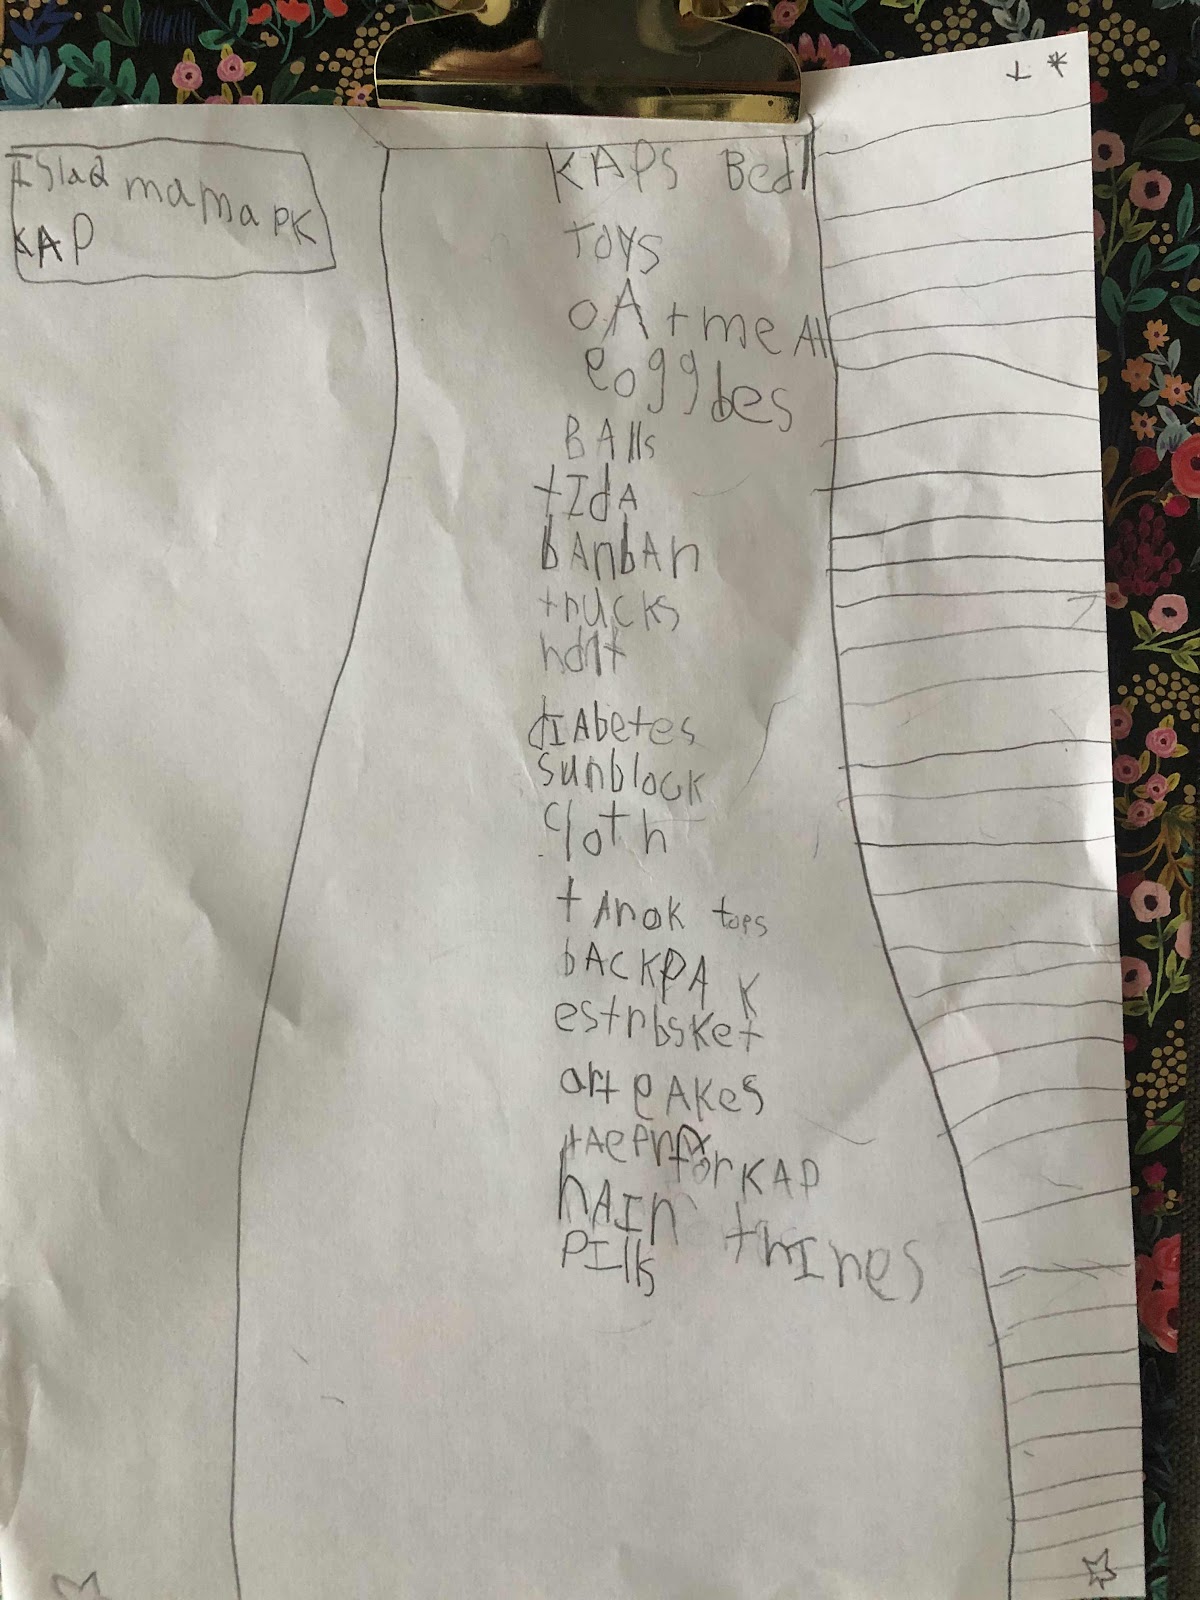 ISlad mama PK
KAP
KAPS Bed
toys
oAtmeAl
eoggbes
BAlls
tIdA
bAnbAn
trucks
hdlt
dIAbetes
sunblock
cloth
tAnok tops
bACKPAK
estrbsket
art PAKes
for KAP
hAIr thInes
PIlls